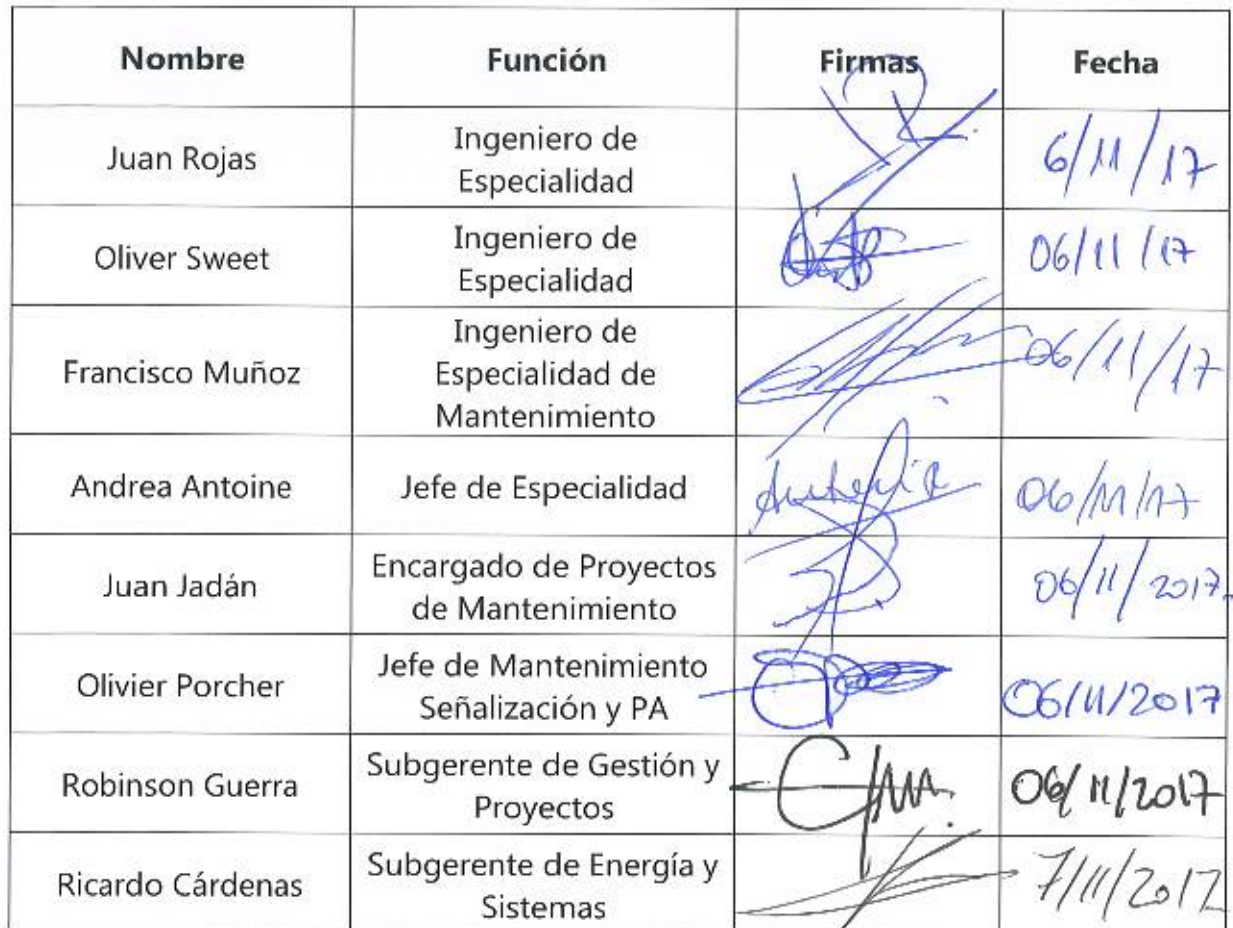 Nombre Función Firmas Fecha
Juan Rojas Ingeniero de Especialidad 6/11/17
Oliver Sweet Ingeniero de Especialidad 06/11/17
Francisco Muñoz Ingeniero de Especialidad de Mantenimiento 06/11/17
Andrea Antoine Jefe de Especialidad 06/11/17
Juan Jadán Encargado de Proyectos de Mantenimiento 06/11/2017
Olivier Porcher Jefe de Mantenimiento Señalización y PA 06/11/2017
Robinson Guerra Subgerente de Gestión y Proyectos 06/11/2017
Ricardo Cárdenas Subgerente de Energía y Sistemas 7/11/2017